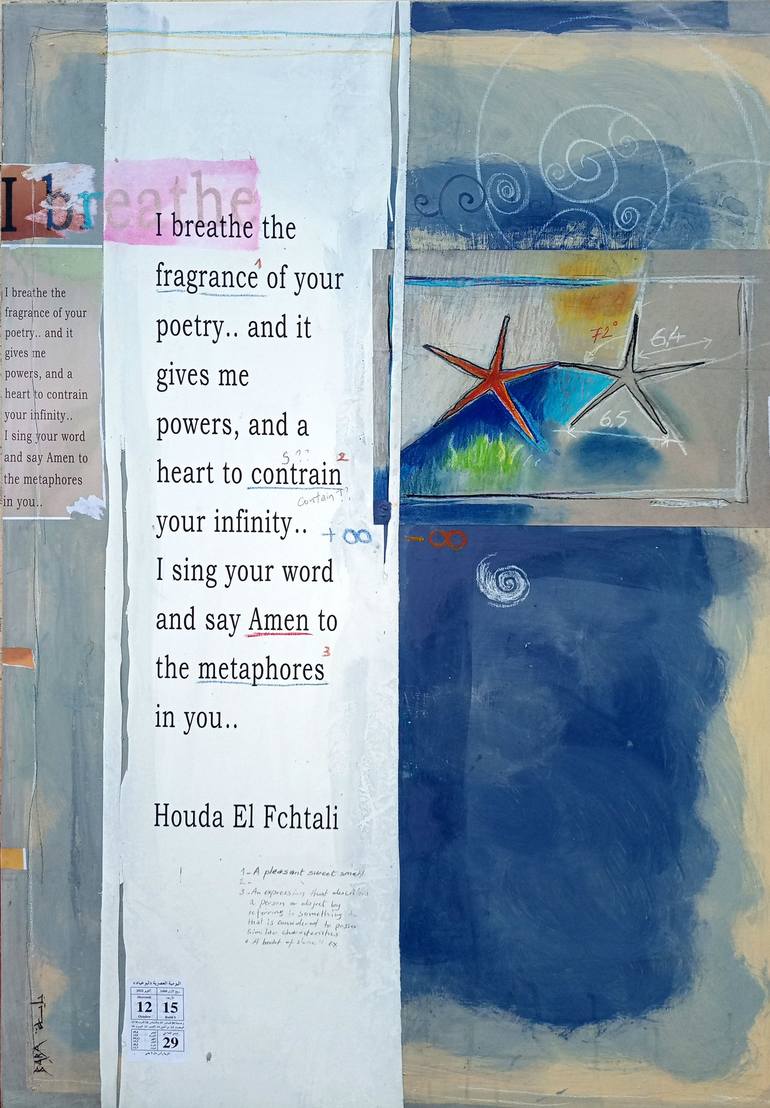 I breathe
I breathe the
fragrance of your
poetry.. and it
gives me
powers, and a
heart to contrain
your infinity..
I sing your word
and say Amen to
the metaphores
in you..
I breathe the
fragrance¹ of your
poetry.. and it
gives me
powers, and a
S ??
heart to contrain²
contain ??
your infinity.. +∞ -∞
I sing your word
and say Amen to
the metaphores³
in you..
Houda El Fchtali
1- A pleasant sweet smell
2-
3- An expression that describes
a person or object by
referring to something
that is considered to
similar characteristics
72°
6,4
6,5
12 15
29
BABA